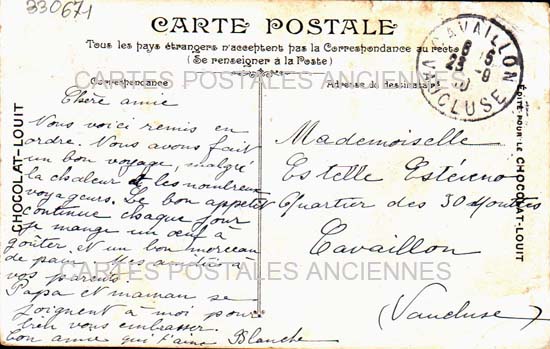 330671
CARTE POSTALE
Tous les pays étrangers n'acceptent pas la Correspondance au recto
(Se renseigner à la Poste)
Correspondance
Adresse du destinataire
CARTES POSTALES ANCIENNES
CAVAILLON
VAUCLUSE
CHOCOLAT-LOUIT
ÉDITÉ POUR LE CHOCOLAT-LOUIT
Chère amie
Nous voici remis en
ordre. Nous avons fait
un bon voyage, malgré
la chaleur et les nombreux
voyageurs. Le bon appetit
continue chaque jour
je mange un œuf à
goûter, et un bon morceau
de pain. Mes amitiés à
vos parents.
Papa et maman se
joignent à moi pour
bien vous embrasser.
Ton amie qui t'aime Blanche
Mademoiselle
Estelle
Quartier des 30 Mouttes
Cavaillon
(Vaucluse)
CARTES POSTALES ANCIENNES